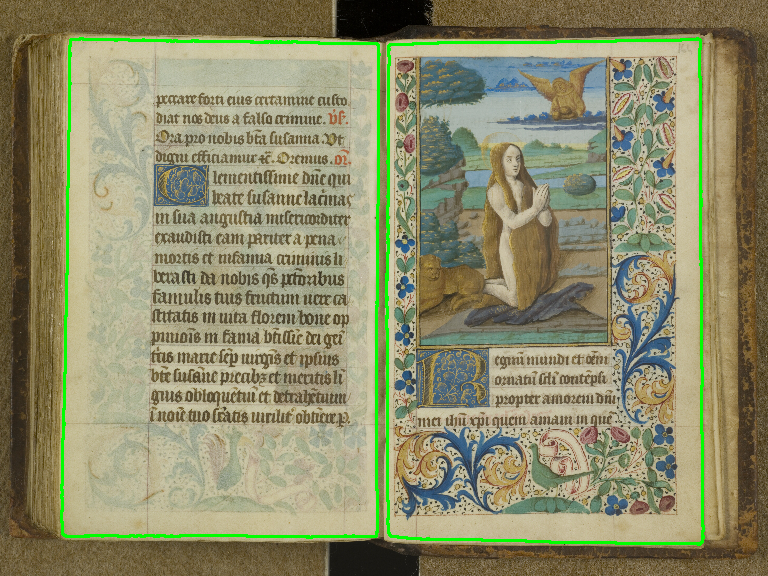 peccare forti eius certamine custo
diat nos deus a falso crimine. v̄s.
Ora pro nobis bt̄a susanna. Vt
digni efficiamur ⁊c̄. Oremus. or̄.
Clementissime dn̄e qui
beate susanne lacrimas
in sua angustia misericorditer
exaudisti eam pariter a pena
mortis et infamia criminis li
berasti da nobis qs̄ pctōribus
famulis tuis fructum vere ca
stitatis in vita florem bone op
pinionis in fama
marie sēp virgīs et ipsius
bt̄e susāne precibꝫ et meritis li
gnis obloquētiū et detrahētium
ī noīe tuo
Regnū mundi et oēm
ornatū scl̄i contēpsi
propter amorem dn̄i
mei ihū xp̄i quem amaui in que